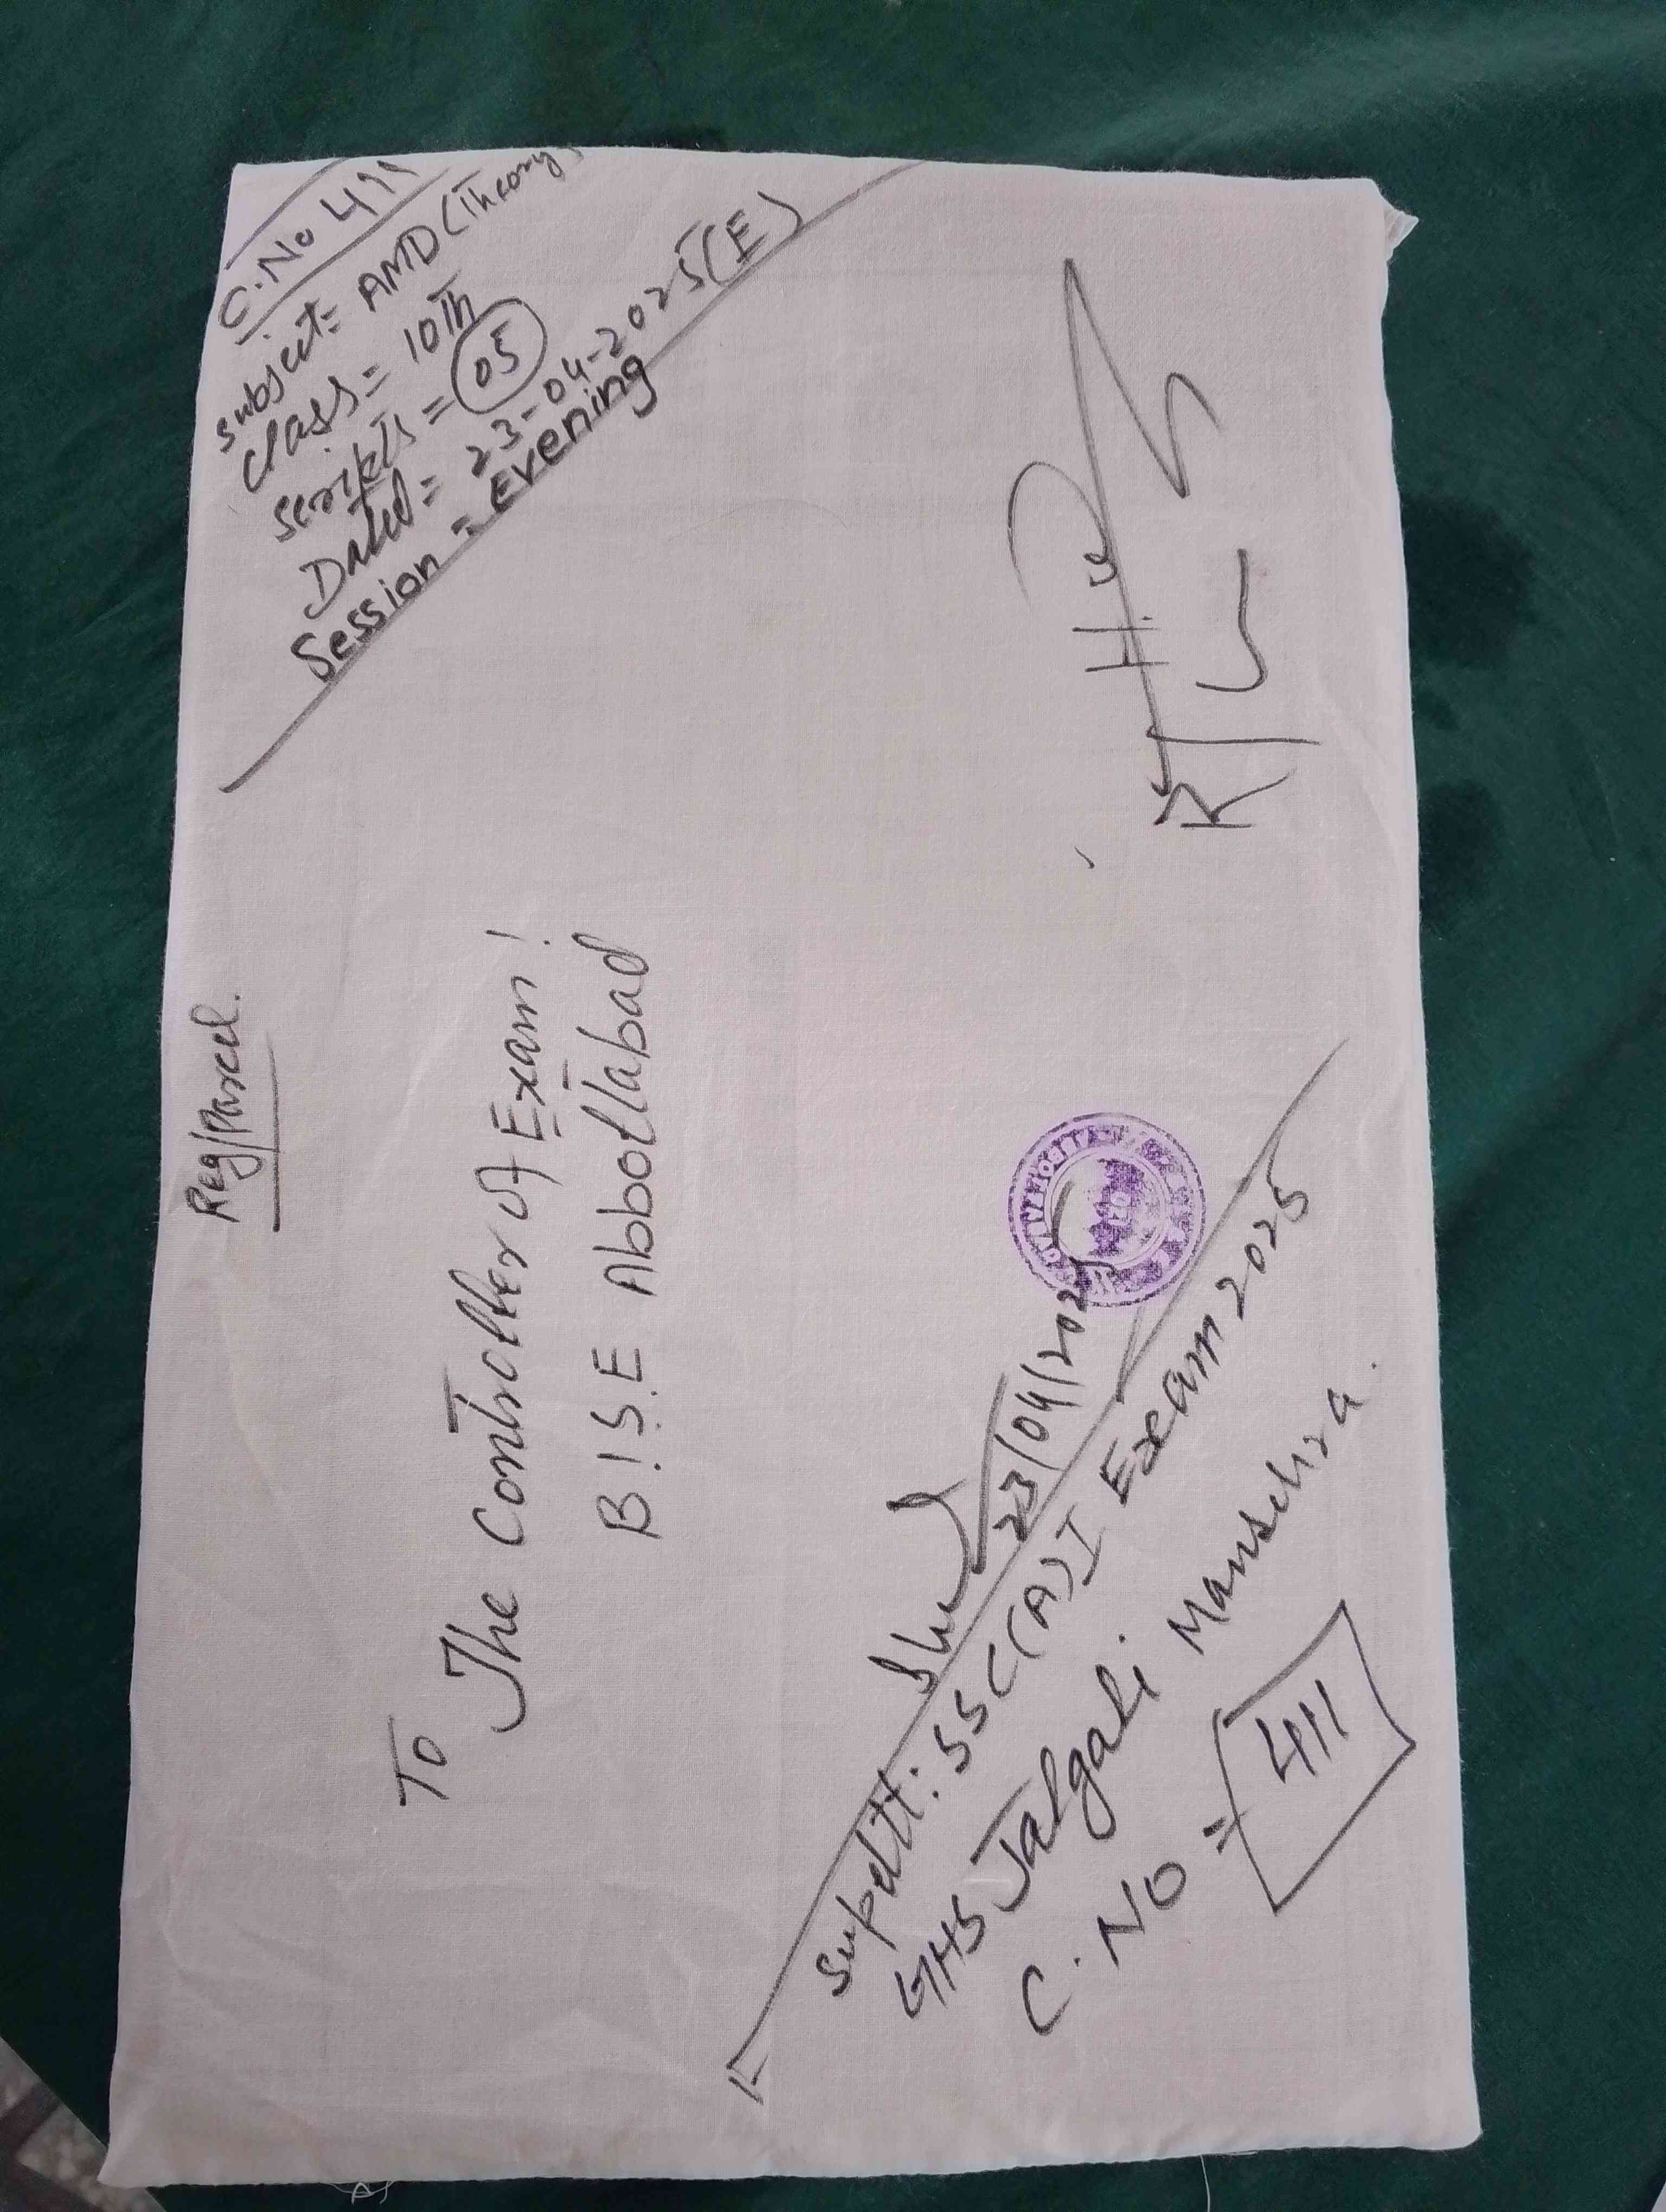 Reg/Parcel.
C.No 411
Subject = AMD (Theory)
Class = 10th
Scripts = 05
Dated = 23-04-2025(E)
Session = Evening
To
The Controller of Exam!
B!S!E Abbottabad
23/04/2025
Supdtt: SSC(A)I Exam 2025
GHS Jalgali Mansehra.
C.No = 411